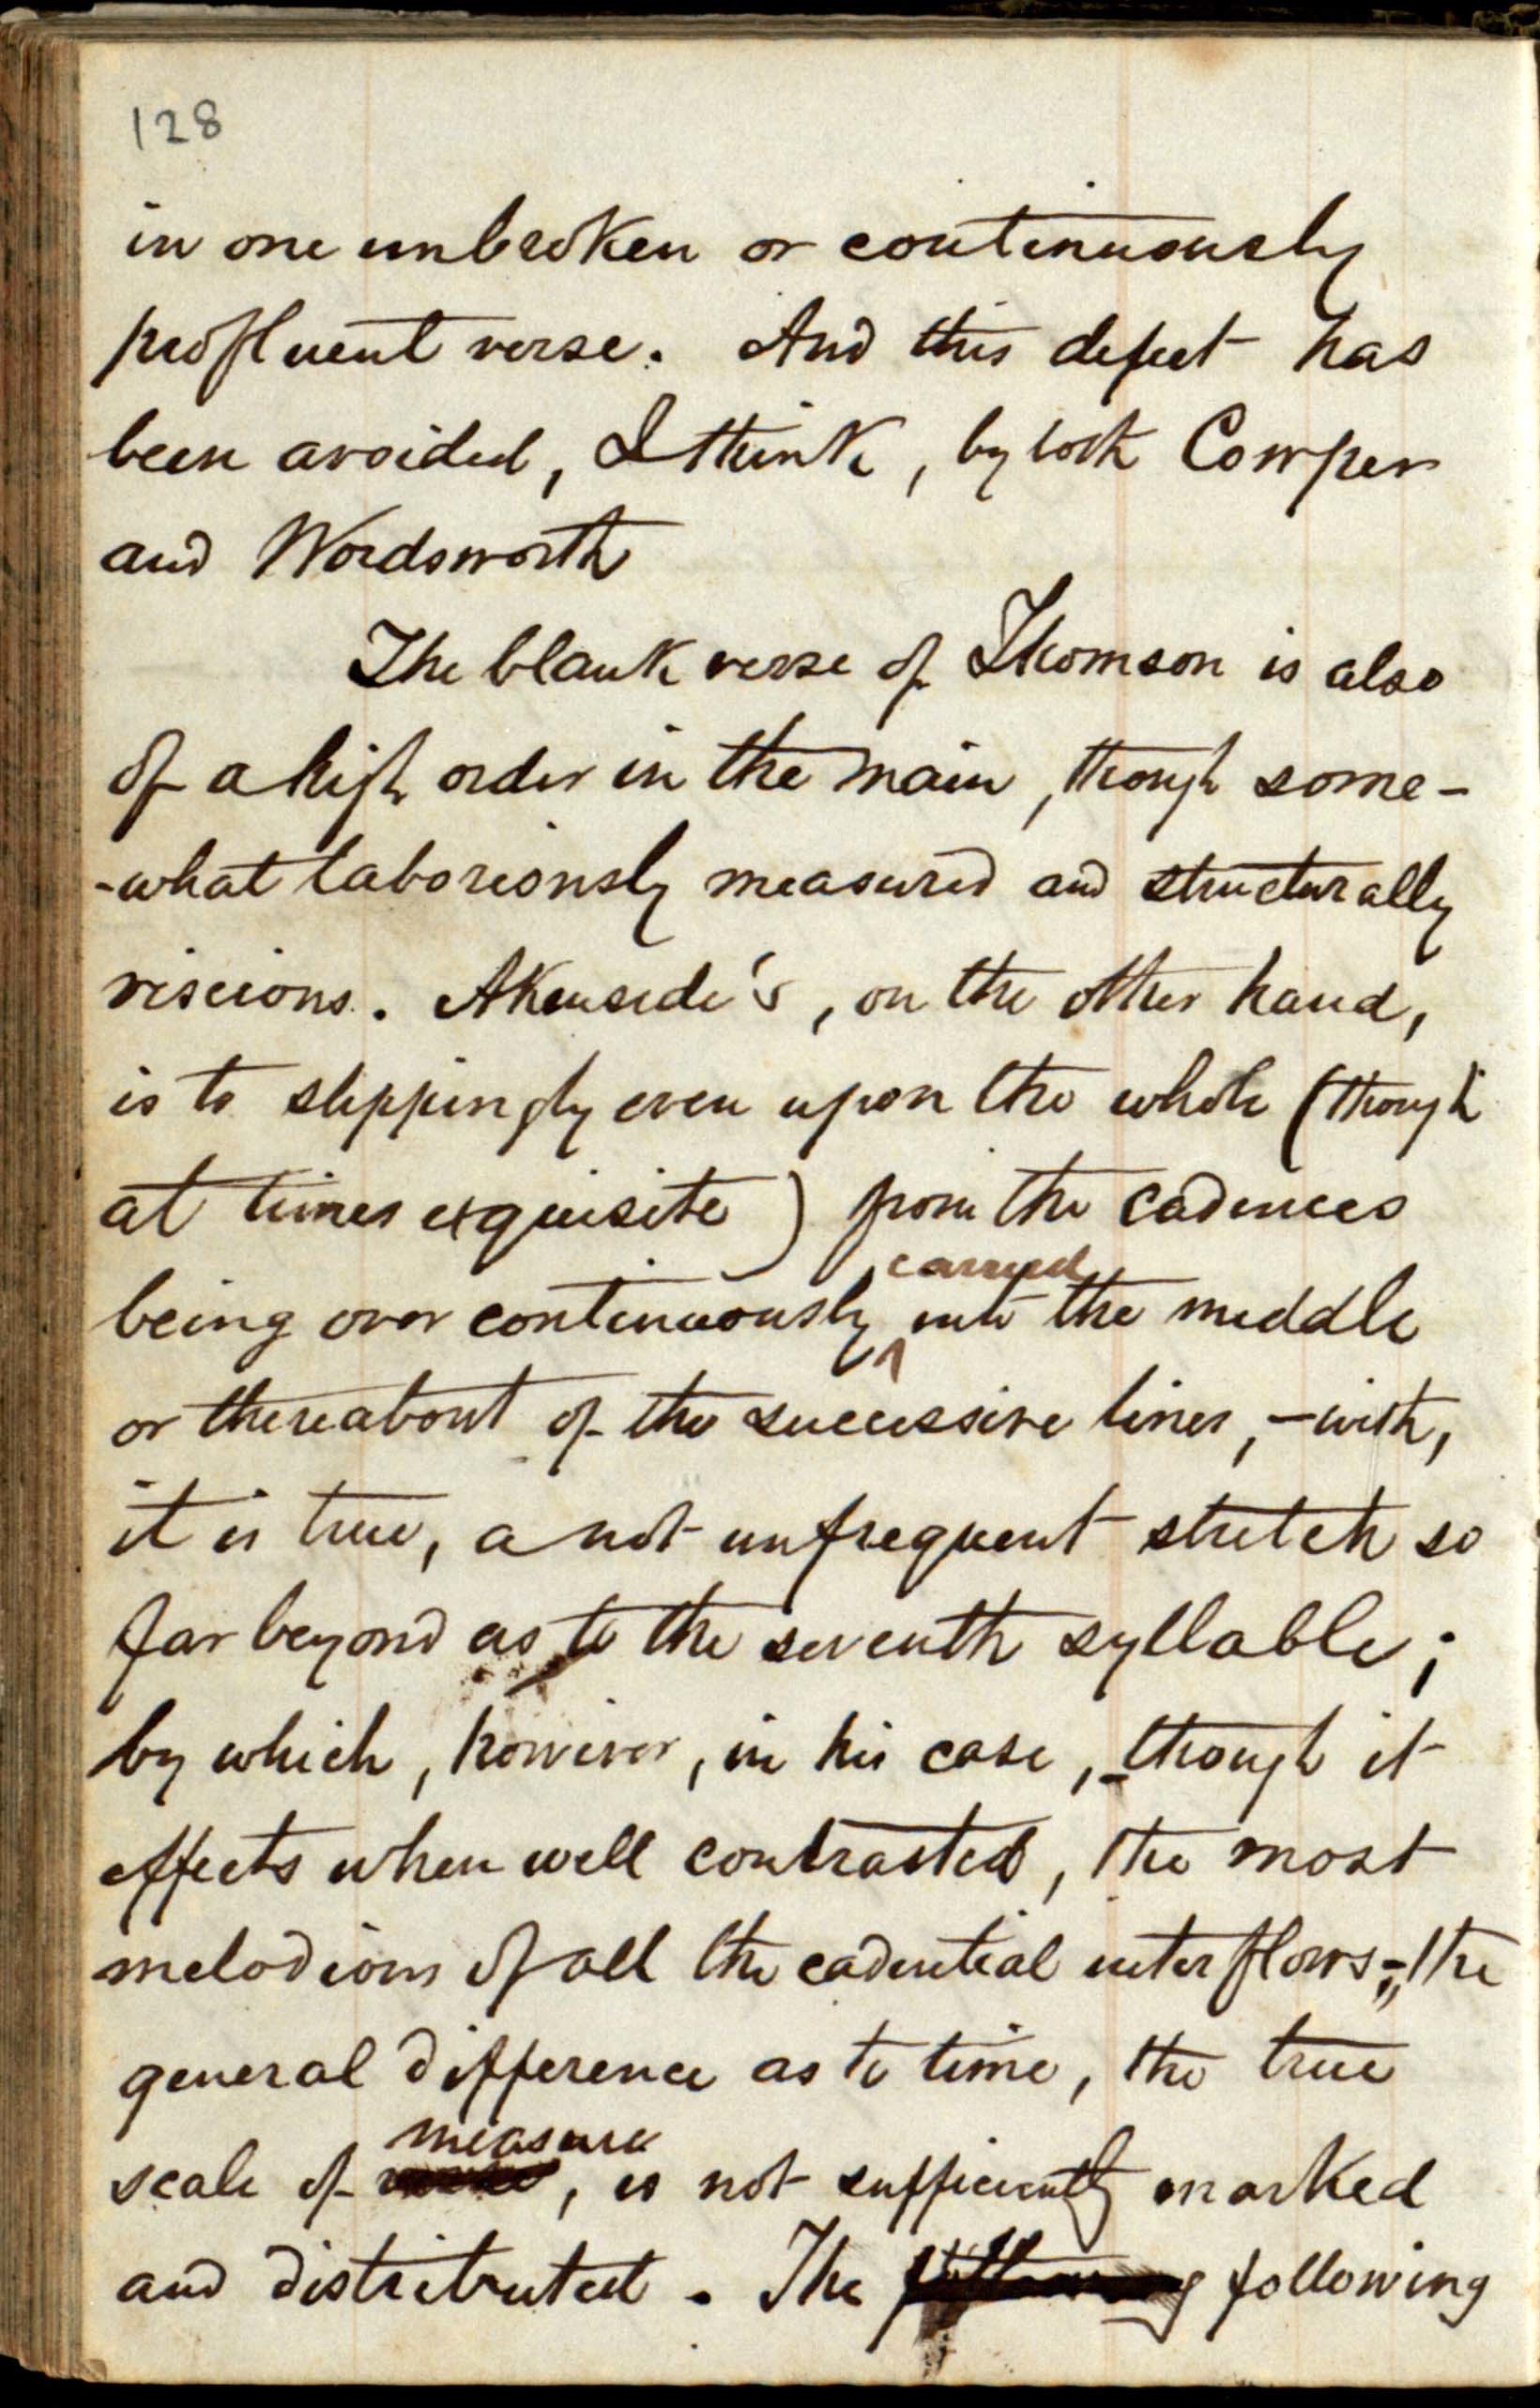 128
in one unbroken or continuously
profluent verse. And this defect has
been avoided, I think, by both Cowper
and Wordsworth
The blank verse of Thomson is also
of a high order in the main, though some-
-what laboriously measured and structurally
viscious. Akenside's, on the other hand,
is to slippingly even upon the whole (though
at times exquisite) from the cadences
carried
being over continuously ^ into the middle
or thereabout of the successive lines, - with,
it is true, a not unfrequent stretch so
far beyond as to the seventh syllable;
by which, however, in his case, though it
effects when well contrasted, the most
melodious of all the cadential interflows, - the
general difference as to time, the true
measure
scale of , is not sufficiently marked
and distributed. The following following